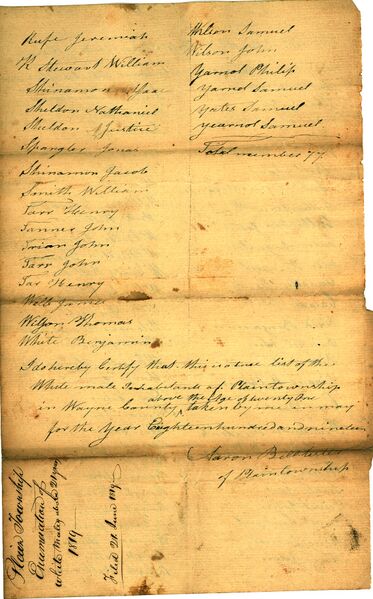 Rufe Jeremiah
R Stewart William
Shinamon Isaac
Sheldon Nathaniel
Sheldon Justice
Spangler Jonas
Shinamon Jacob
Smith William
Tarr Henry
Tanner John
Trian John
Tarr John
Tar Henry
Wells James
Wilson Thomas
White Benjamin
Wilson Samuel
Wilson John
Yarnol Philip
Yarnol Samuel
Yates Samuel
yearnol Samuel
Total number 77
I do hereby Certify that this is a true list of the
White male Inhabitants of Plaintownship
in Wayne County above the Age of twenty One taken by me in may
for the Year Eighteen hundred and nineteen
Aaron
of Plaintownship
Plain Township
Enumeration of
white Males above 21 years
1819
Filed 21 June 1819